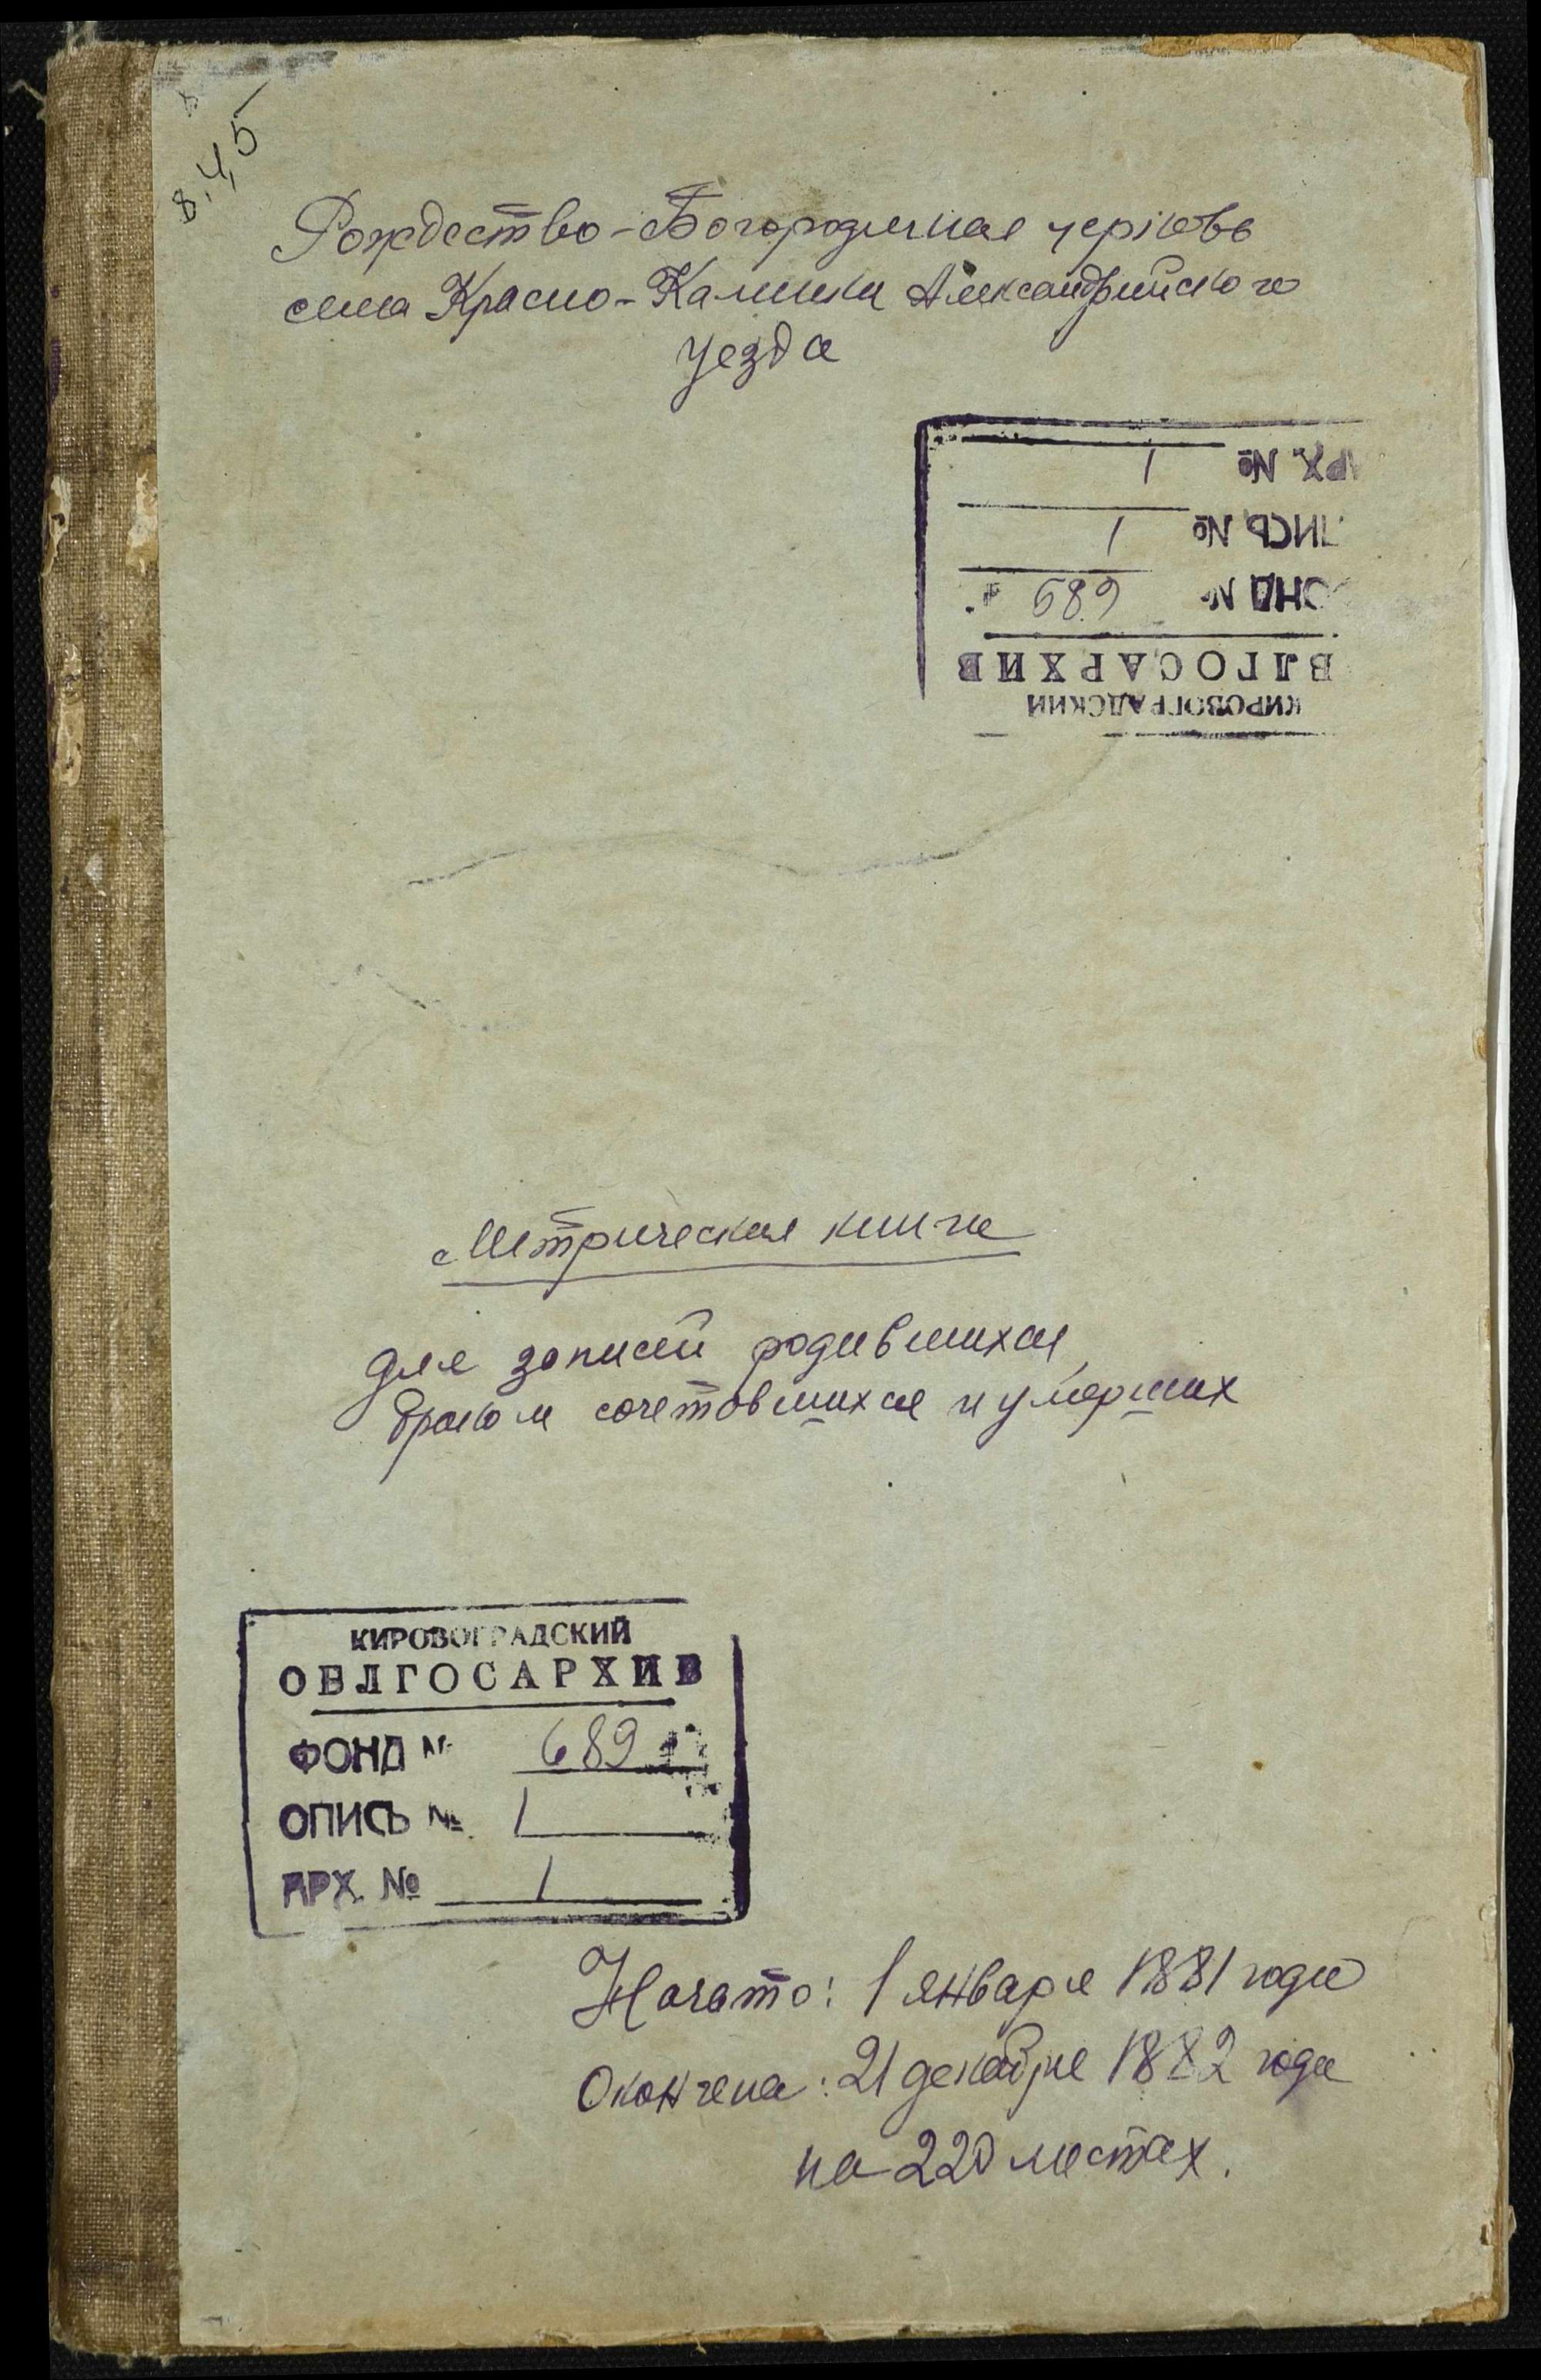 8.4,5
Рождество-Богородичная церковь
села Красно-Каменки Александрийского
уезда
АРХ. № 1
ПИСЬ № 1
ОНД № 689
ВЛГОСАРХИВ
КИРОВОГРАДСКИЙ
Метрическая книга
для записей родившихся,
браком сочетовшихся и умерших
КИРОВОГРАДСКИЙ
ОБЛГОСАРХИВ
ФОНД № 689
ОПИСЬ № 1
АРХ. № 1
Начато: 1 января 1881 года
Окончена: 21 декабря 1882 года
на 220 листах.